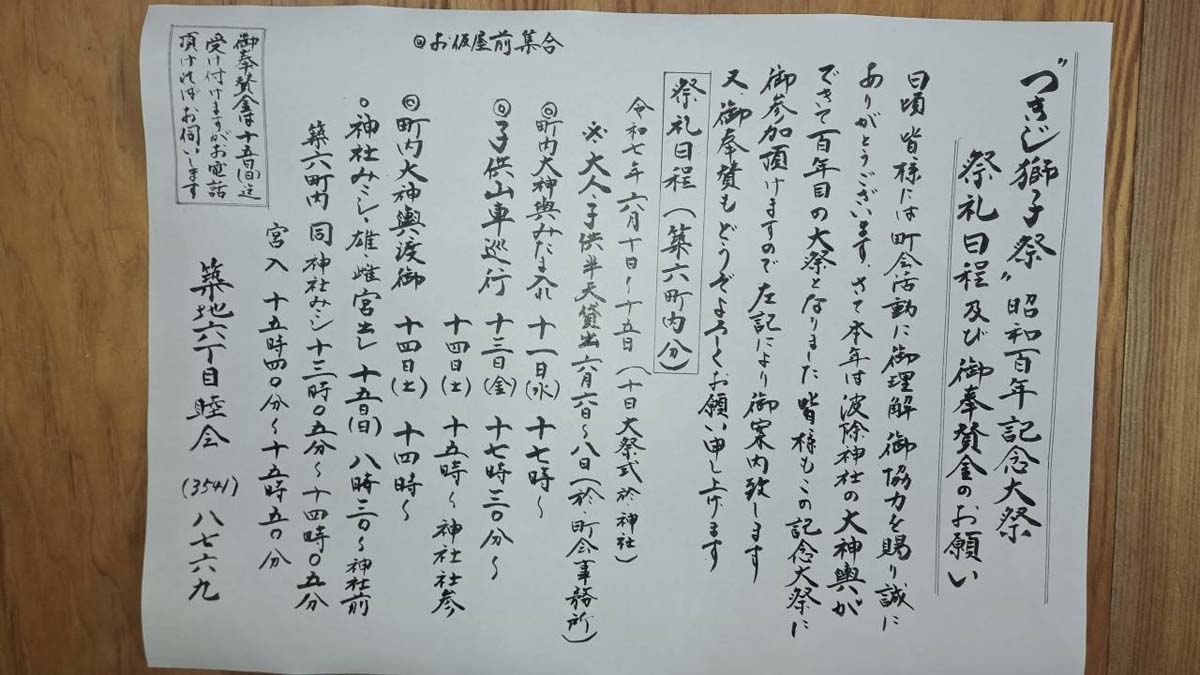 “つきじ獅子祭”昭和百年記念大祭
祭礼日程及び御奉賛金のお願い
日頃皆様には町会活動に御理解御協力を賜り誠に
ありがとうございます。さて本年は波除神社の大神輿が
できて百年目の大祭となりました皆様もこの記念大祭に
御参加頂けますので左記により御案内致します
又御奉賛もどうぞよろしくお願い申し上げます
祭礼日程(築六町内分)
令和七年六月十日〜十五日(十日大祭式於神社)
※大人・子供半天貸出六月六日〜八日(於町会事務所)
◎町内大神輿みたま入れ 十一日(水) 十七時〜
◎子供山車巡行 十三日(金) 十七時三〇分〜
十四日(土) 十五時〜神社社参
◎町内大神輿渡御 十四日(土) 十四時〜
○神社みこし・雄・雌宮出し 十五日(日) 八時三〇〜神社前
築六町内 同神社みこし十三時〇五分〜十四時〇五分
宮入 十五時四〇分〜十五時五〇分
◎お仮屋前集合
築地六丁目睦会 (3541)八七六九
御奉賛金は十五日(日)迄
受け付けますがお電話
頂ければお伺いします